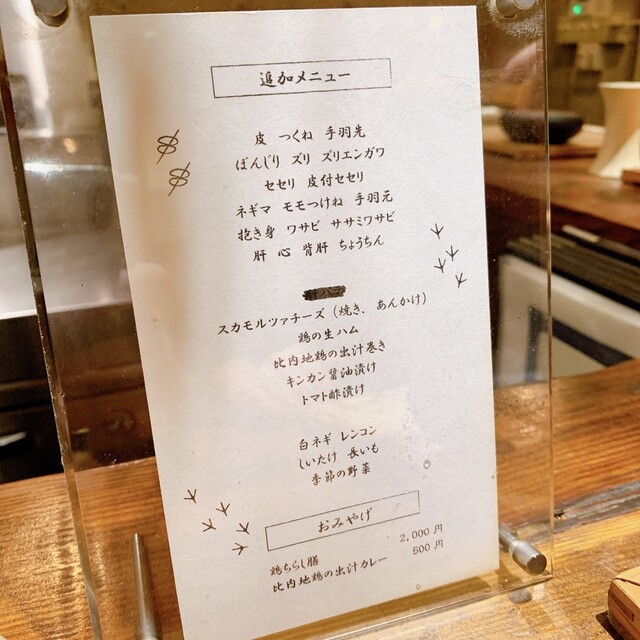 追加メニュー
皮 つくね 手羽先
ぼんじり ズリ ズリエンガワ
セセリ 皮付セセリ
ネギマ モモつけね 手羽元
抱き身 ワサビ ササミワサビ
肝 心 背肝 ちょうちん
スカモルツァチーズ（焼き、あんかけ）
鶏の生ハム
比内地鶏の出汁巻き
キンカン醤油漬け
トマト酢漬け
白ネギ レンコン
しいたけ 長いも
季節の野菜
おみやげ
鶏ちらし膳 2,000 円
比内地鶏の出汁カレー 500 円